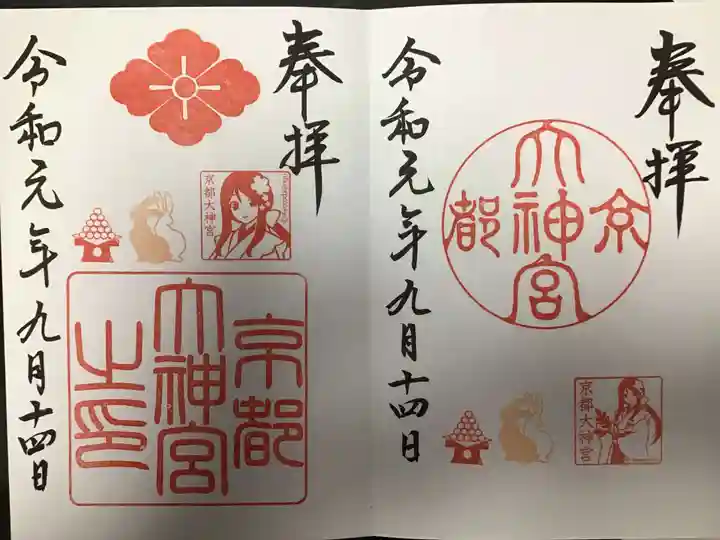 奉拝
京都
大神宮
令和元年九月十四日
奉拝
京都大神宮
京都
大神宮
之印
令和元年九月十四日
京都大神宮